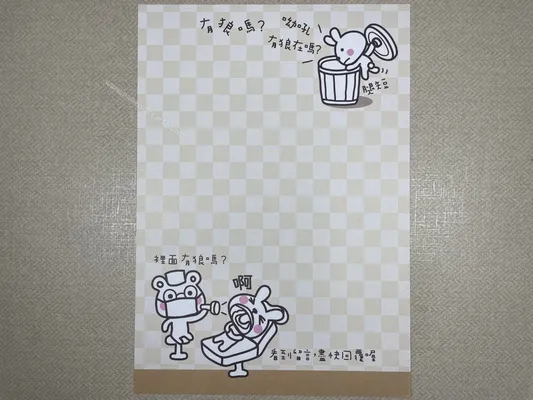 有狼嗎？ 呦吼
有狼在嗎？
腿短
裡面有狼嗎？
啊
看到留言，盡快回覆喔